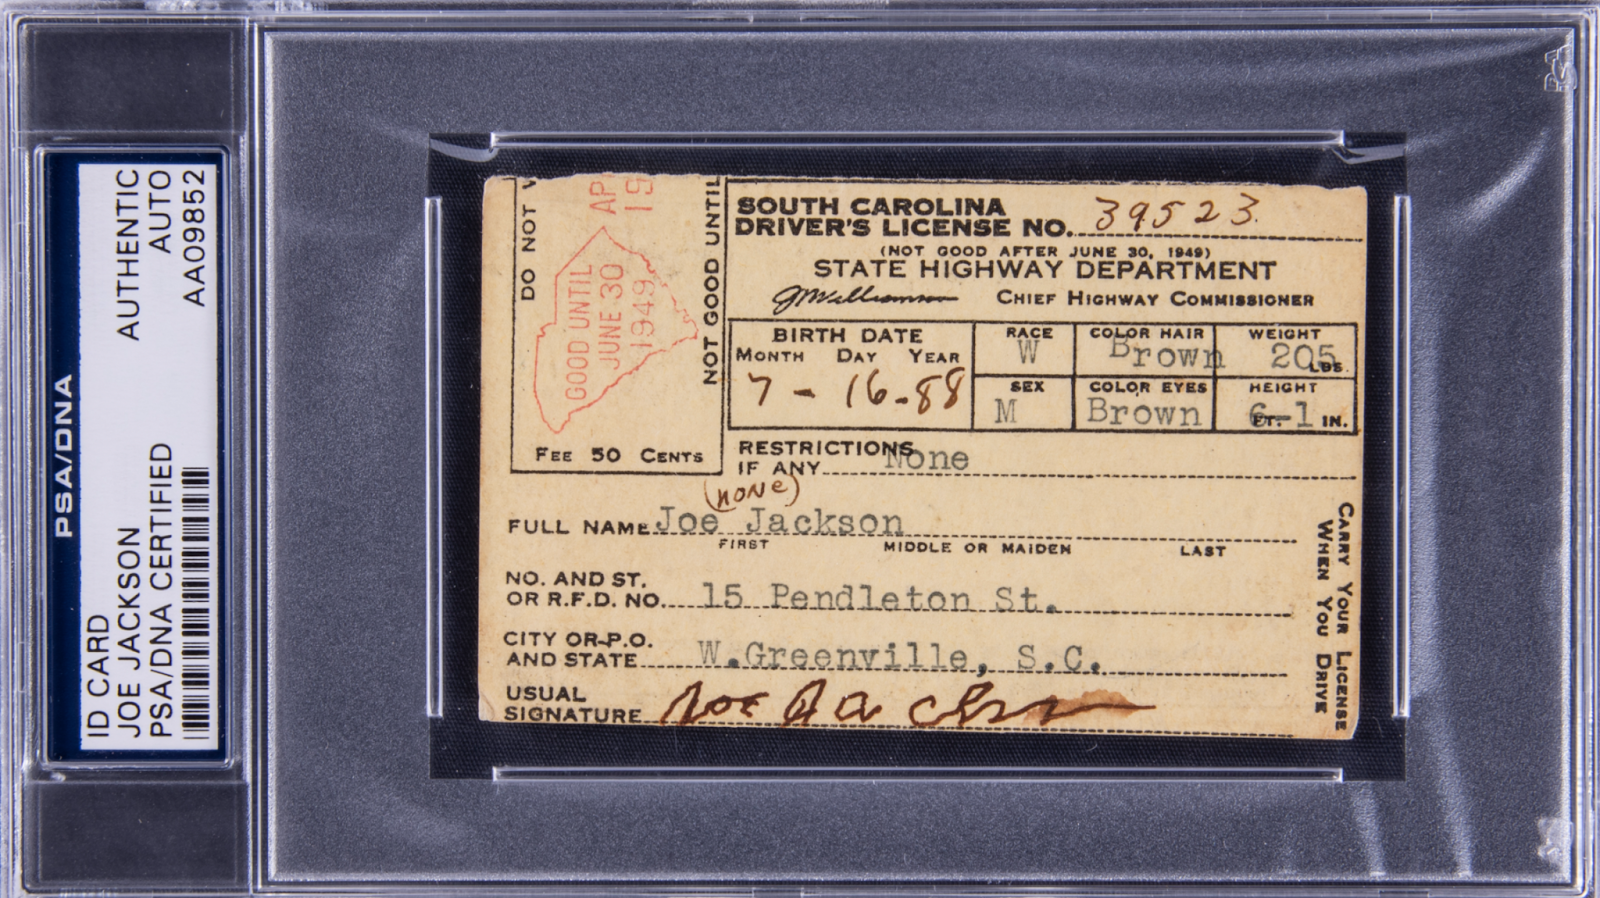 PSA/DNA
ID CARD AUTHENTIC
JOE JACKSON AUTO
PSA/DNA CERTIFIED AA09852
DO NOT
AP
19
GOOD UNTIL
JUNE 30
1949
NOT GOOD UNTIL
FEE 50 CENTS
SOUTH CAROLINA
DRIVER'S LICENSE NO. 39523.
(NOT GOOD AFTER JUNE 30, 1949)
STATE HIGHWAY DEPARTMENT
JMWilliamson CHIEF HIGHWAY COMMISSIONER
BIRTH DATE RACE COLOR HAIR WEIGHT
MONTH DAY YEAR W Brown 205 LBS.
7 - 16 - 88 SEX COLOR EYES HEIGHT
M Brown 6 FT. -1 IN.
RESTRICTIONS
IF ANY None
(none)
FULL NAME Joe Jackson
FIRST MIDDLE OR MAIDEN LAST
NO. AND ST.
OR R.F.D. NO. 15 Pendleton St.
CITY OR P.O.
AND STATE W.Greenville, S.C.
USUAL
SIGNATURE Joe Jackson
CARRY YOUR LICENSE
WHEN YOU DRIVE
PSA